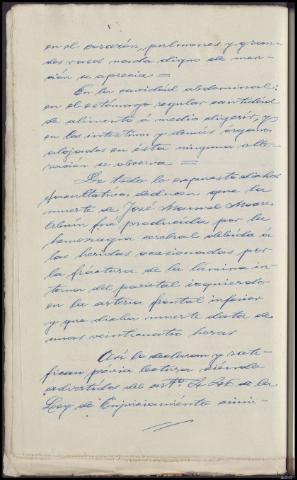 en el corazón, pulmones y gran-
des vasos nada digno de men-
ción se aprecia =
En la cavidad abdominal:
en el estómago regular cantidad
de alimento á medio digerir, y
en los intestinos y demás órganos
alojados en ésta ninguna alte-
ración se observa =
De todo lo expuesto dichos
facultativos deducen que la
muerte de José Manuel
fué producida por la
hemorragia cerebral debida á
las heridas ocasionadas por
la fractura de la lámina in-
terna del parietal izquierdo
en la arteria frontal inferior
y que dicha muerte data de
unas veinticuatro horas
Así lo declaran y rati-
fican previa lectura siendo
advertidos del artº 446 de la
Ley de Enjuiciamiento